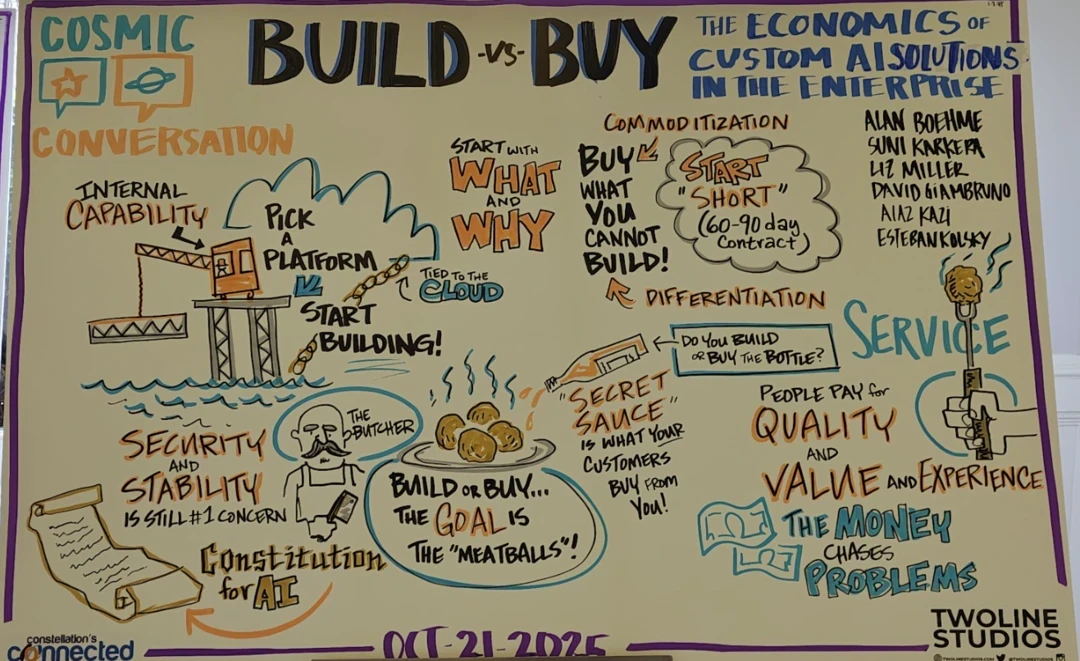 COSMIC
CONVERSATION
BUILD -VS- BUY
THE ECONOMICS OF
CUSTOM AI SOLUTIONS
IN THE ENTERPRISE
ALAN BOEHME
SUNI KARKERA
LIZ MILLER
DAVID GIAMBRUNO
AIAZ KAZI
ESTEBAN KOLSKY
INTERNAL
CAPABILITY
PICK
A
PLATFORM
START
BUILDING!
TIED TO THE
CLOUD
START WITH
WHAT
AND
WHY
COMMODITIZATION
BUY
WHAT
YOU
CANNOT
BUILD!
DIFFERENTIATION
START
"SHORT"
(60-90 day
Contract)
SECURITY
AND
STABILITY
IS STILL #1 CONCERN
THE
BUTCHER
Constitution
for AI
BUILD OR BUY...
THE GOAL IS
THE "MEATBALLS"!
DO YOU BUILD
OR BUY THE BOTTLE?
"SECRET
SAUCE"
IS WHAT YOUR
CUSTOMERS
BUY FROM
YOU!
SERVICE
PEOPLE PAY for
QUALITY
AND
VALUE AND EXPERIENCE
THE MONEY
CHASES
PROBLEMS
constellation's
connected
OCT-21-2025
TWOLINE
STUDIOS